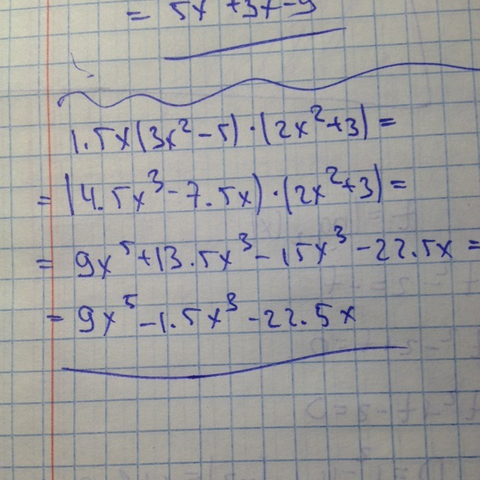 = 5x +3x-9
1.5x(3x²-5)·(2x²+3)=
=(4.5x³-7.5x)·(2x²+3)=
= 9x⁵+13.5x³-15x³-22.5x =
= 9x⁵-1.5x³-22.5x